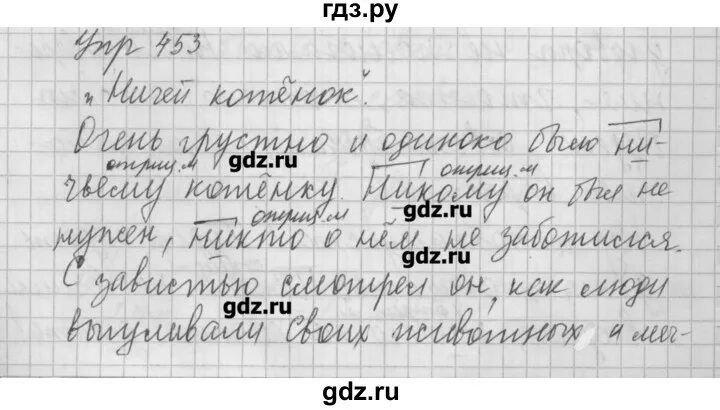 гдз.ру
Упр 453
„Ничей котёнок".
Очень грустно и одиноко было ни-
gdz.ru
отриц. м отриц. м
чьему котёнку. Никому он был не
gdz.ru
отриц. м
нужен, никто о нём не заботился.
gdz.ru
С завистью смотрел он, как люди
gdz.ru
выгуливали своих животных, и меч-
gdz.ru